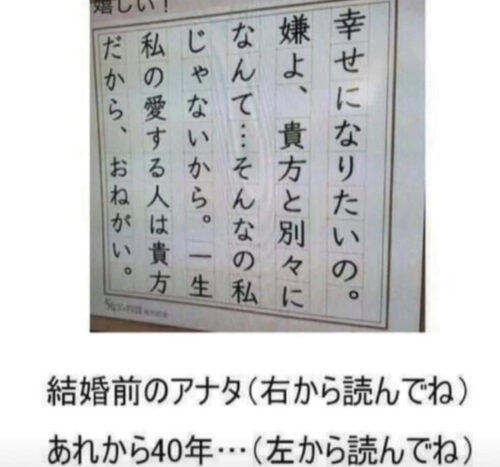 嬉しい！
幸せになりたいの。
嫌よ、貴方と別々に
なんて…そんなの私
じゃないから。一生
私の愛する人は貴方
だから、おねがい。
結婚前のアナタ（右から読んでね）
あれから40年…（左から読んでね）